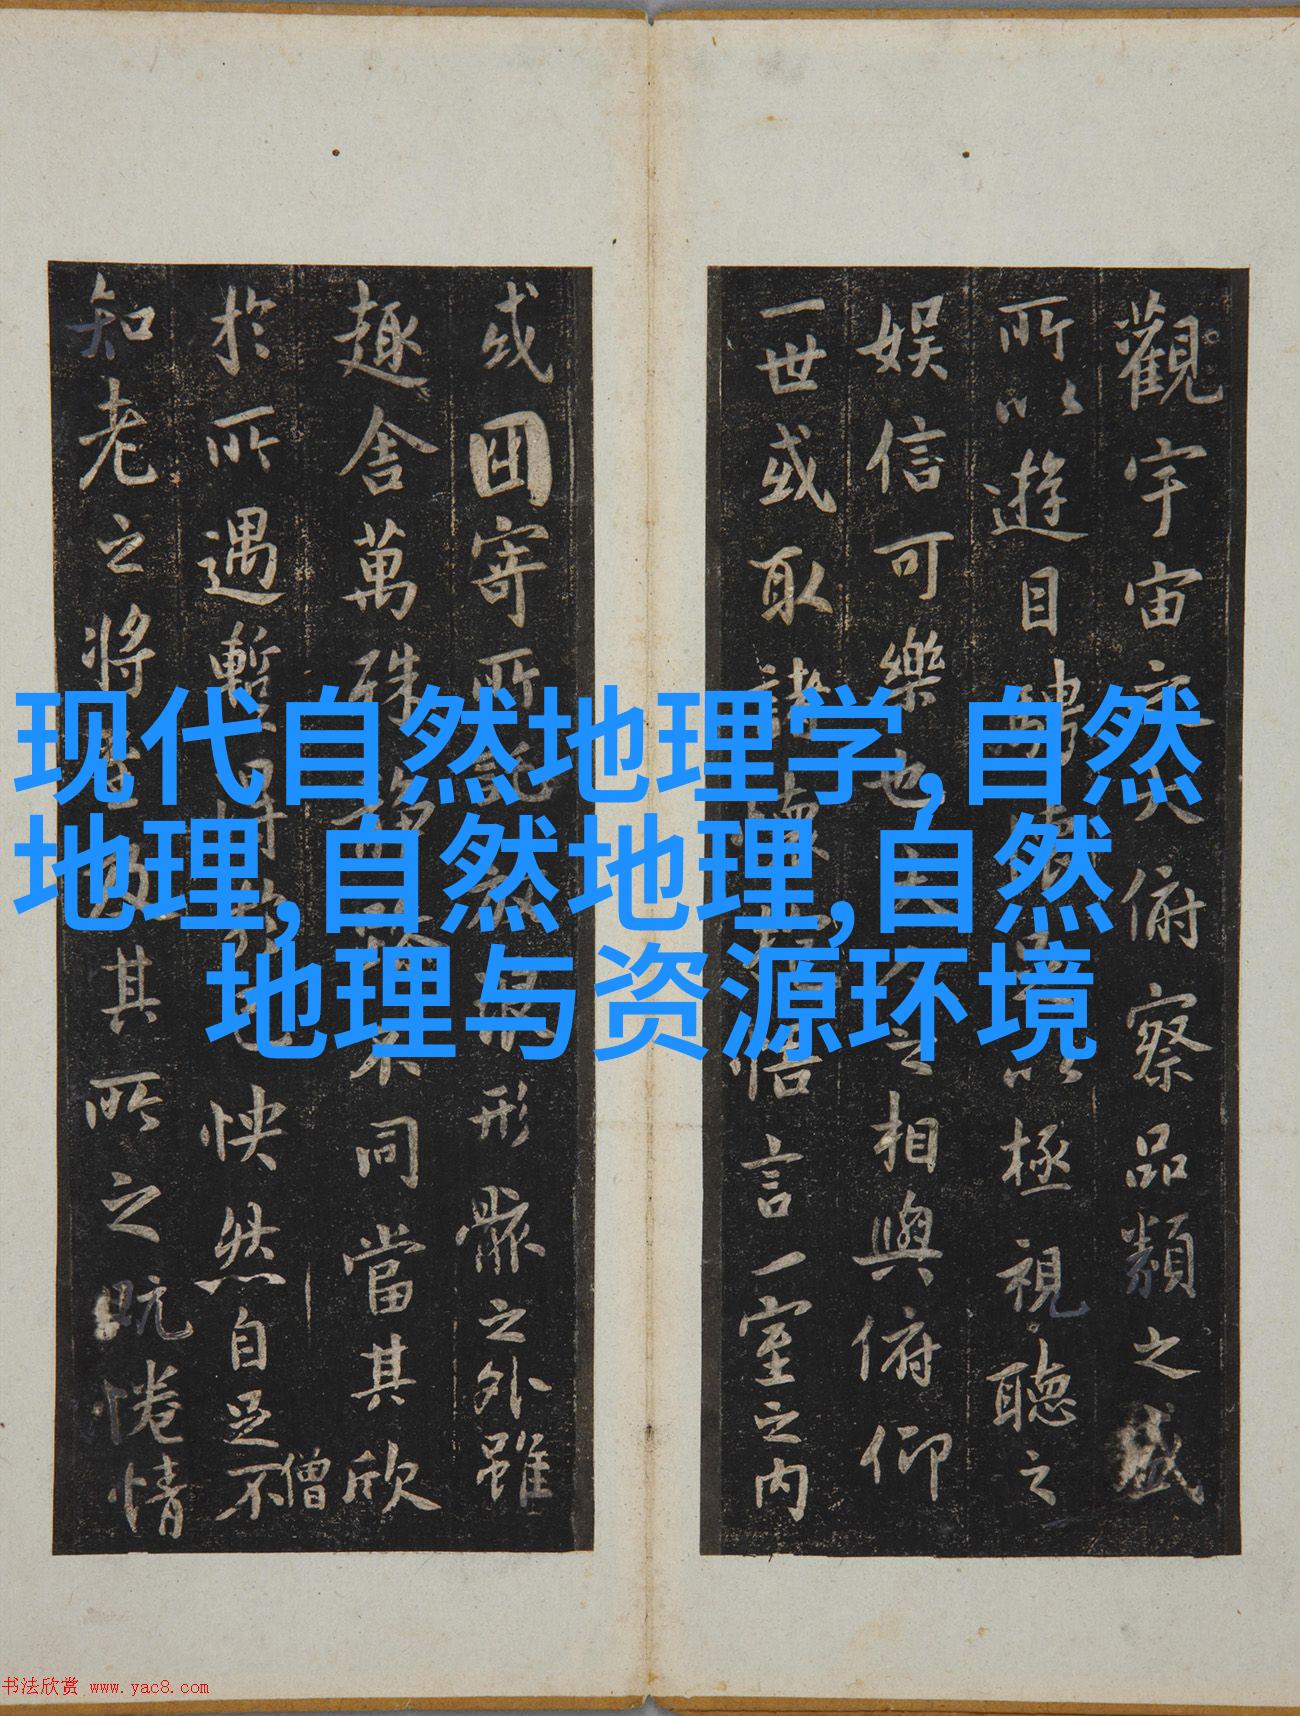 现代自然地理学,自然
地理,自然地理,自然
地理与资源环境
觀宇宙之大俯察品類之盛
所以遊目騁懷足以極視聽之
娛信可樂也夫人之相與俯仰
一世或取諸懷抱悟言一室之內
或因寄所託放浪形骸之外雖
趣舍萬殊靜躁不同當其欣
於所遇暫得於己怏然自足不
僧
知老之將至及其所之既惓情
书法欣赏 www.yac8.com